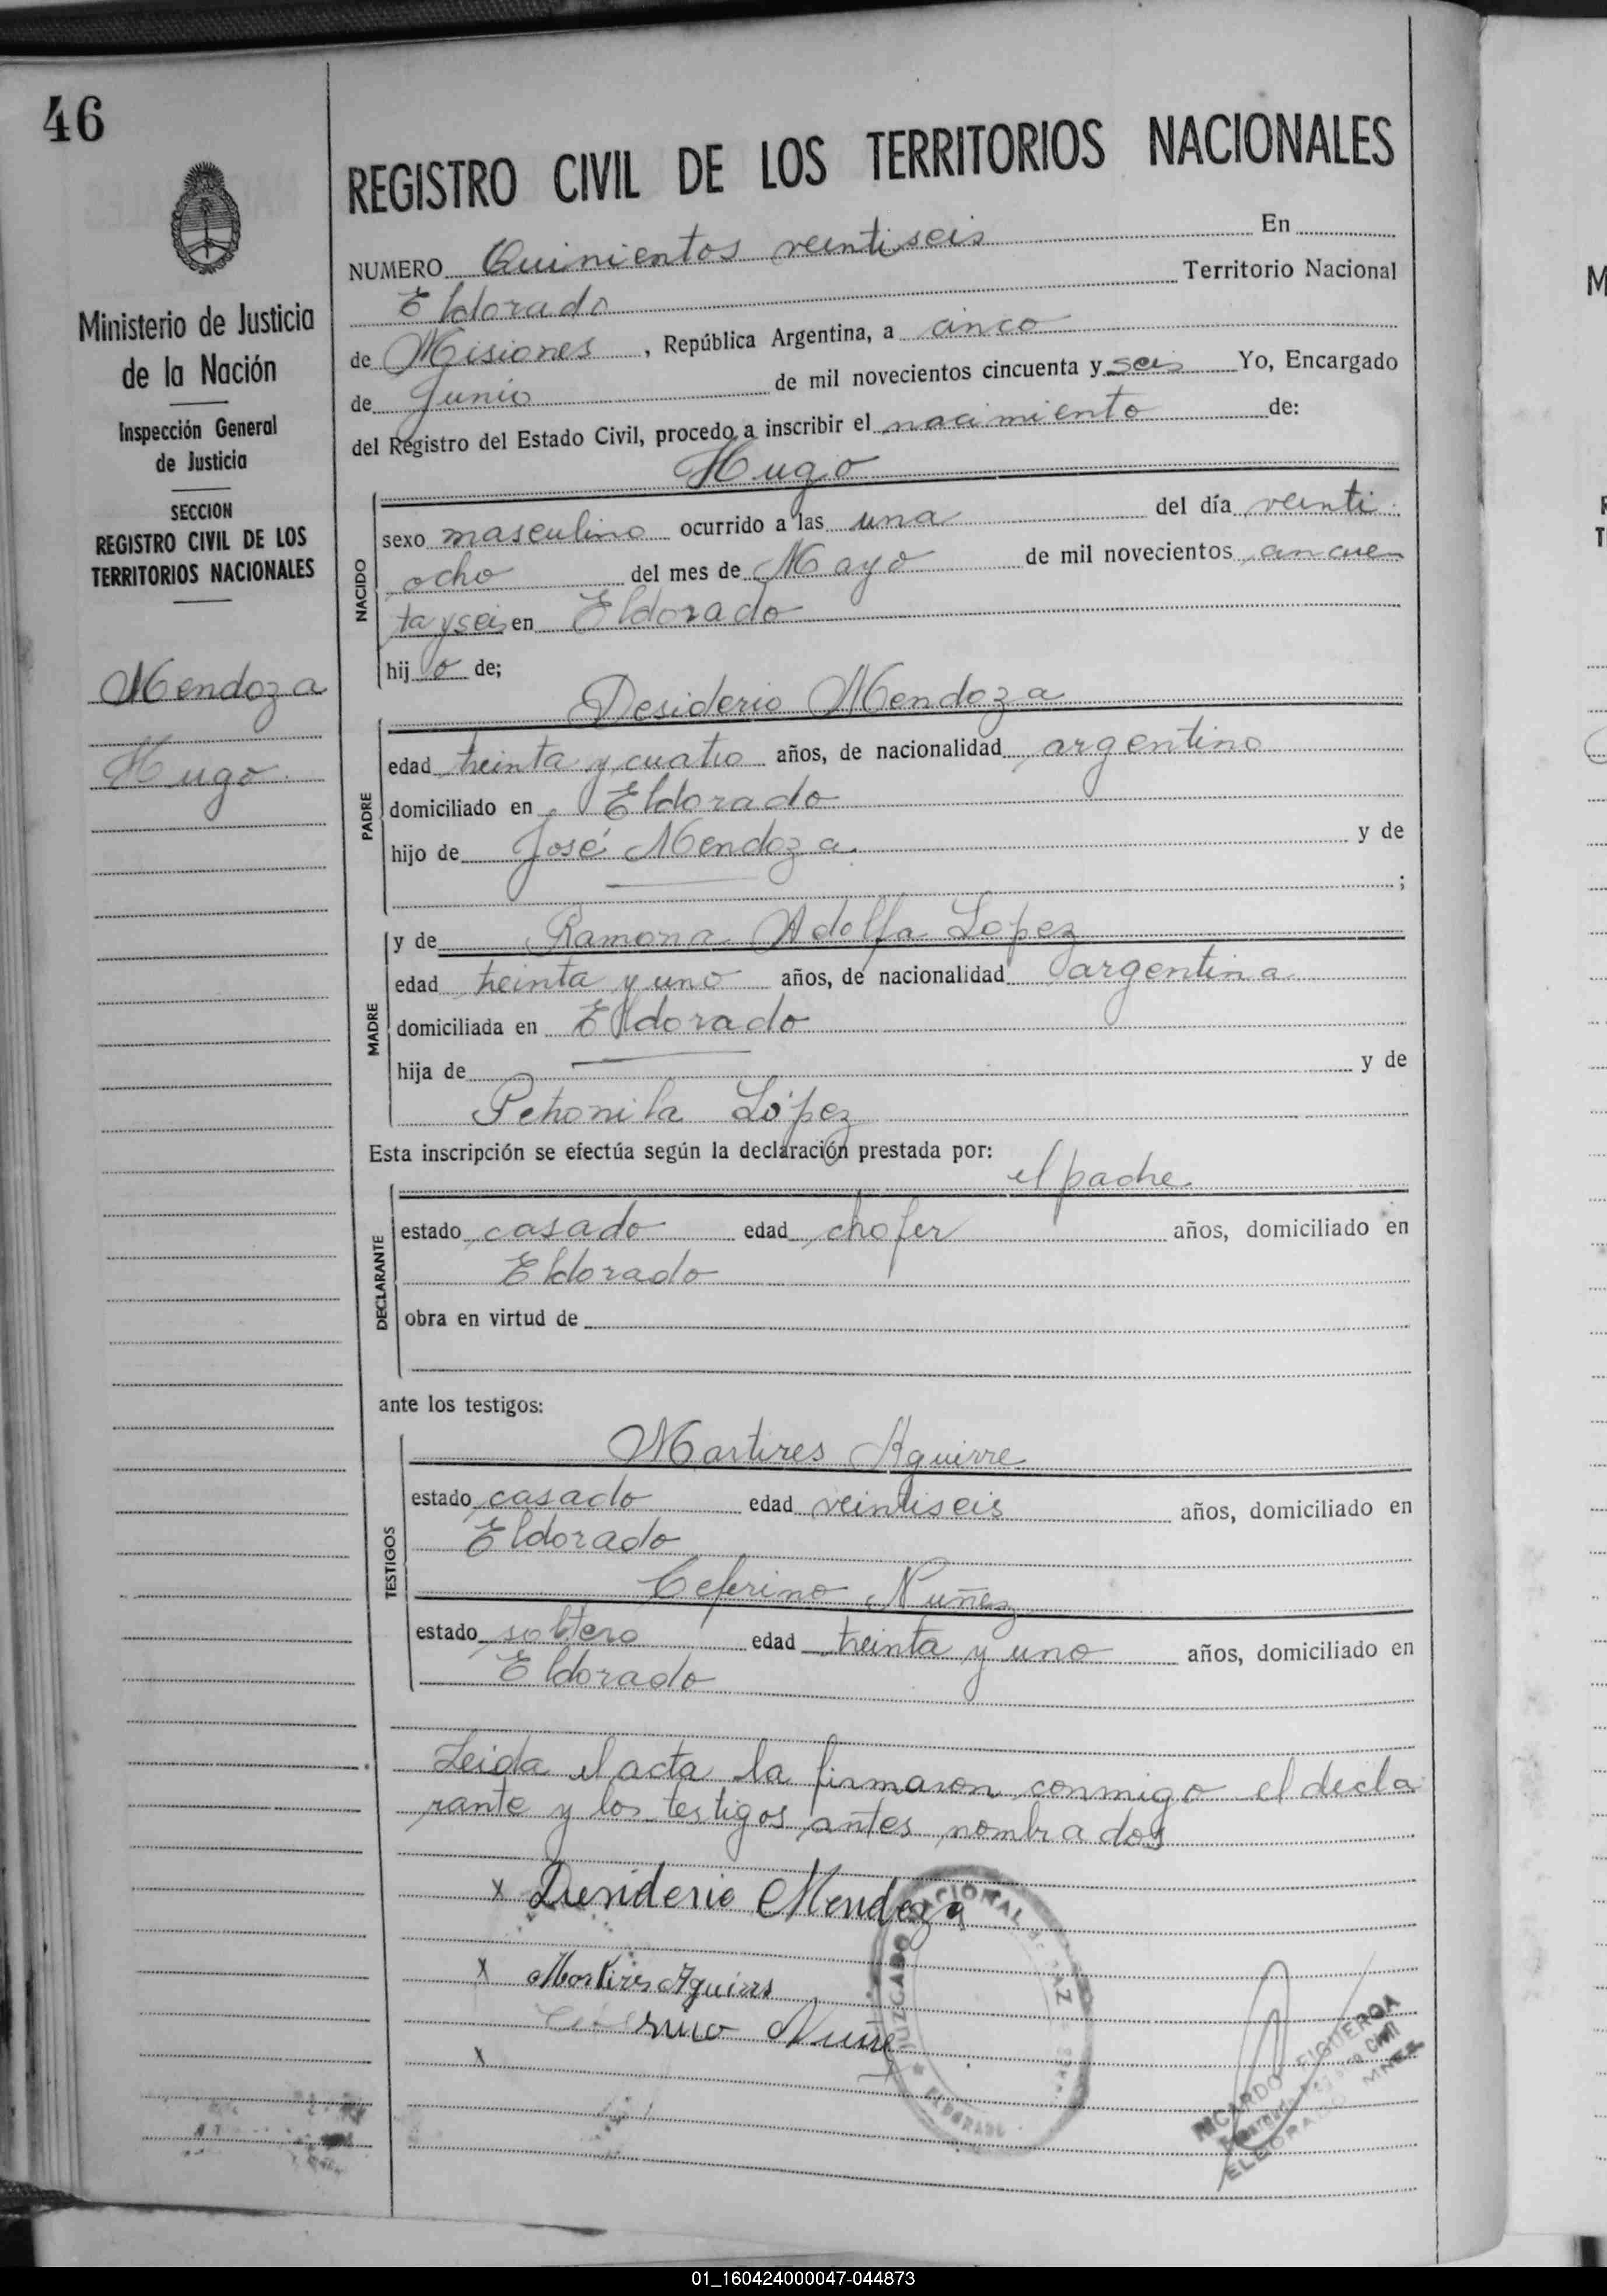 46
REGISTRO CIVIL DE LOS TERRITORIOS NACIONALES
NUMERO Quinientos veintiseis En
Eldorado Territorio Nacional
de Misiones, República Argentina, a cinco
de Junio de mil novecientos cincuenta y seis Yo, Encargado
del Registro del Estado Civil, procedo a inscribir el nacimiento de:
Hugo
Ministerio de Justicia
de la Nación
Inspección General
de Justicia
SECCION
REGISTRO CIVIL DE LOS
TERRITORIOS NACIONALES
Mendoza
Hugo
NACIDO
sexo masculino ocurrido a las una del día veinti
ocho del mes de Mayo de mil novecientos cincuen
ta y seis en Eldorado
hijo de;
Desiderio Mendoza
PADRE
edad treinta y cuatro años, de nacionalidad argentino
domiciliado en Eldorado
hijo de José Mendoza. y de
;
MADRE
y de Ramona Adolfa Lopez
edad treinta y uno años, de nacionalidad argentina
domiciliada en Eldorado
hija de y de
Petronila López
Esta inscripción se efectúa según la declaración prestada por:
el padre
DECLARANTE
estado casado edad chofer años, domiciliado en
Eldorado
obra en virtud de
ante los testigos:
TESTIGOS
Martires Aguirre
estado casado edad veintiseis años, domiciliado en
Eldorado
Ceferino Nuñez
estado soltero edad treinta y uno años, domiciliado en
Eldorado
Leida el acta la firmaron conmigo el decla
rante y los testigos antes nombrados
x Desiderio Mendoza
x Martires Aguirre
x
JUZGADO NACIONAL DE PAZ
ELDORADO
RICARDO FIGUEROA
Encargado Registro Civil
ELDORADO MNES
01_160424000047-044873